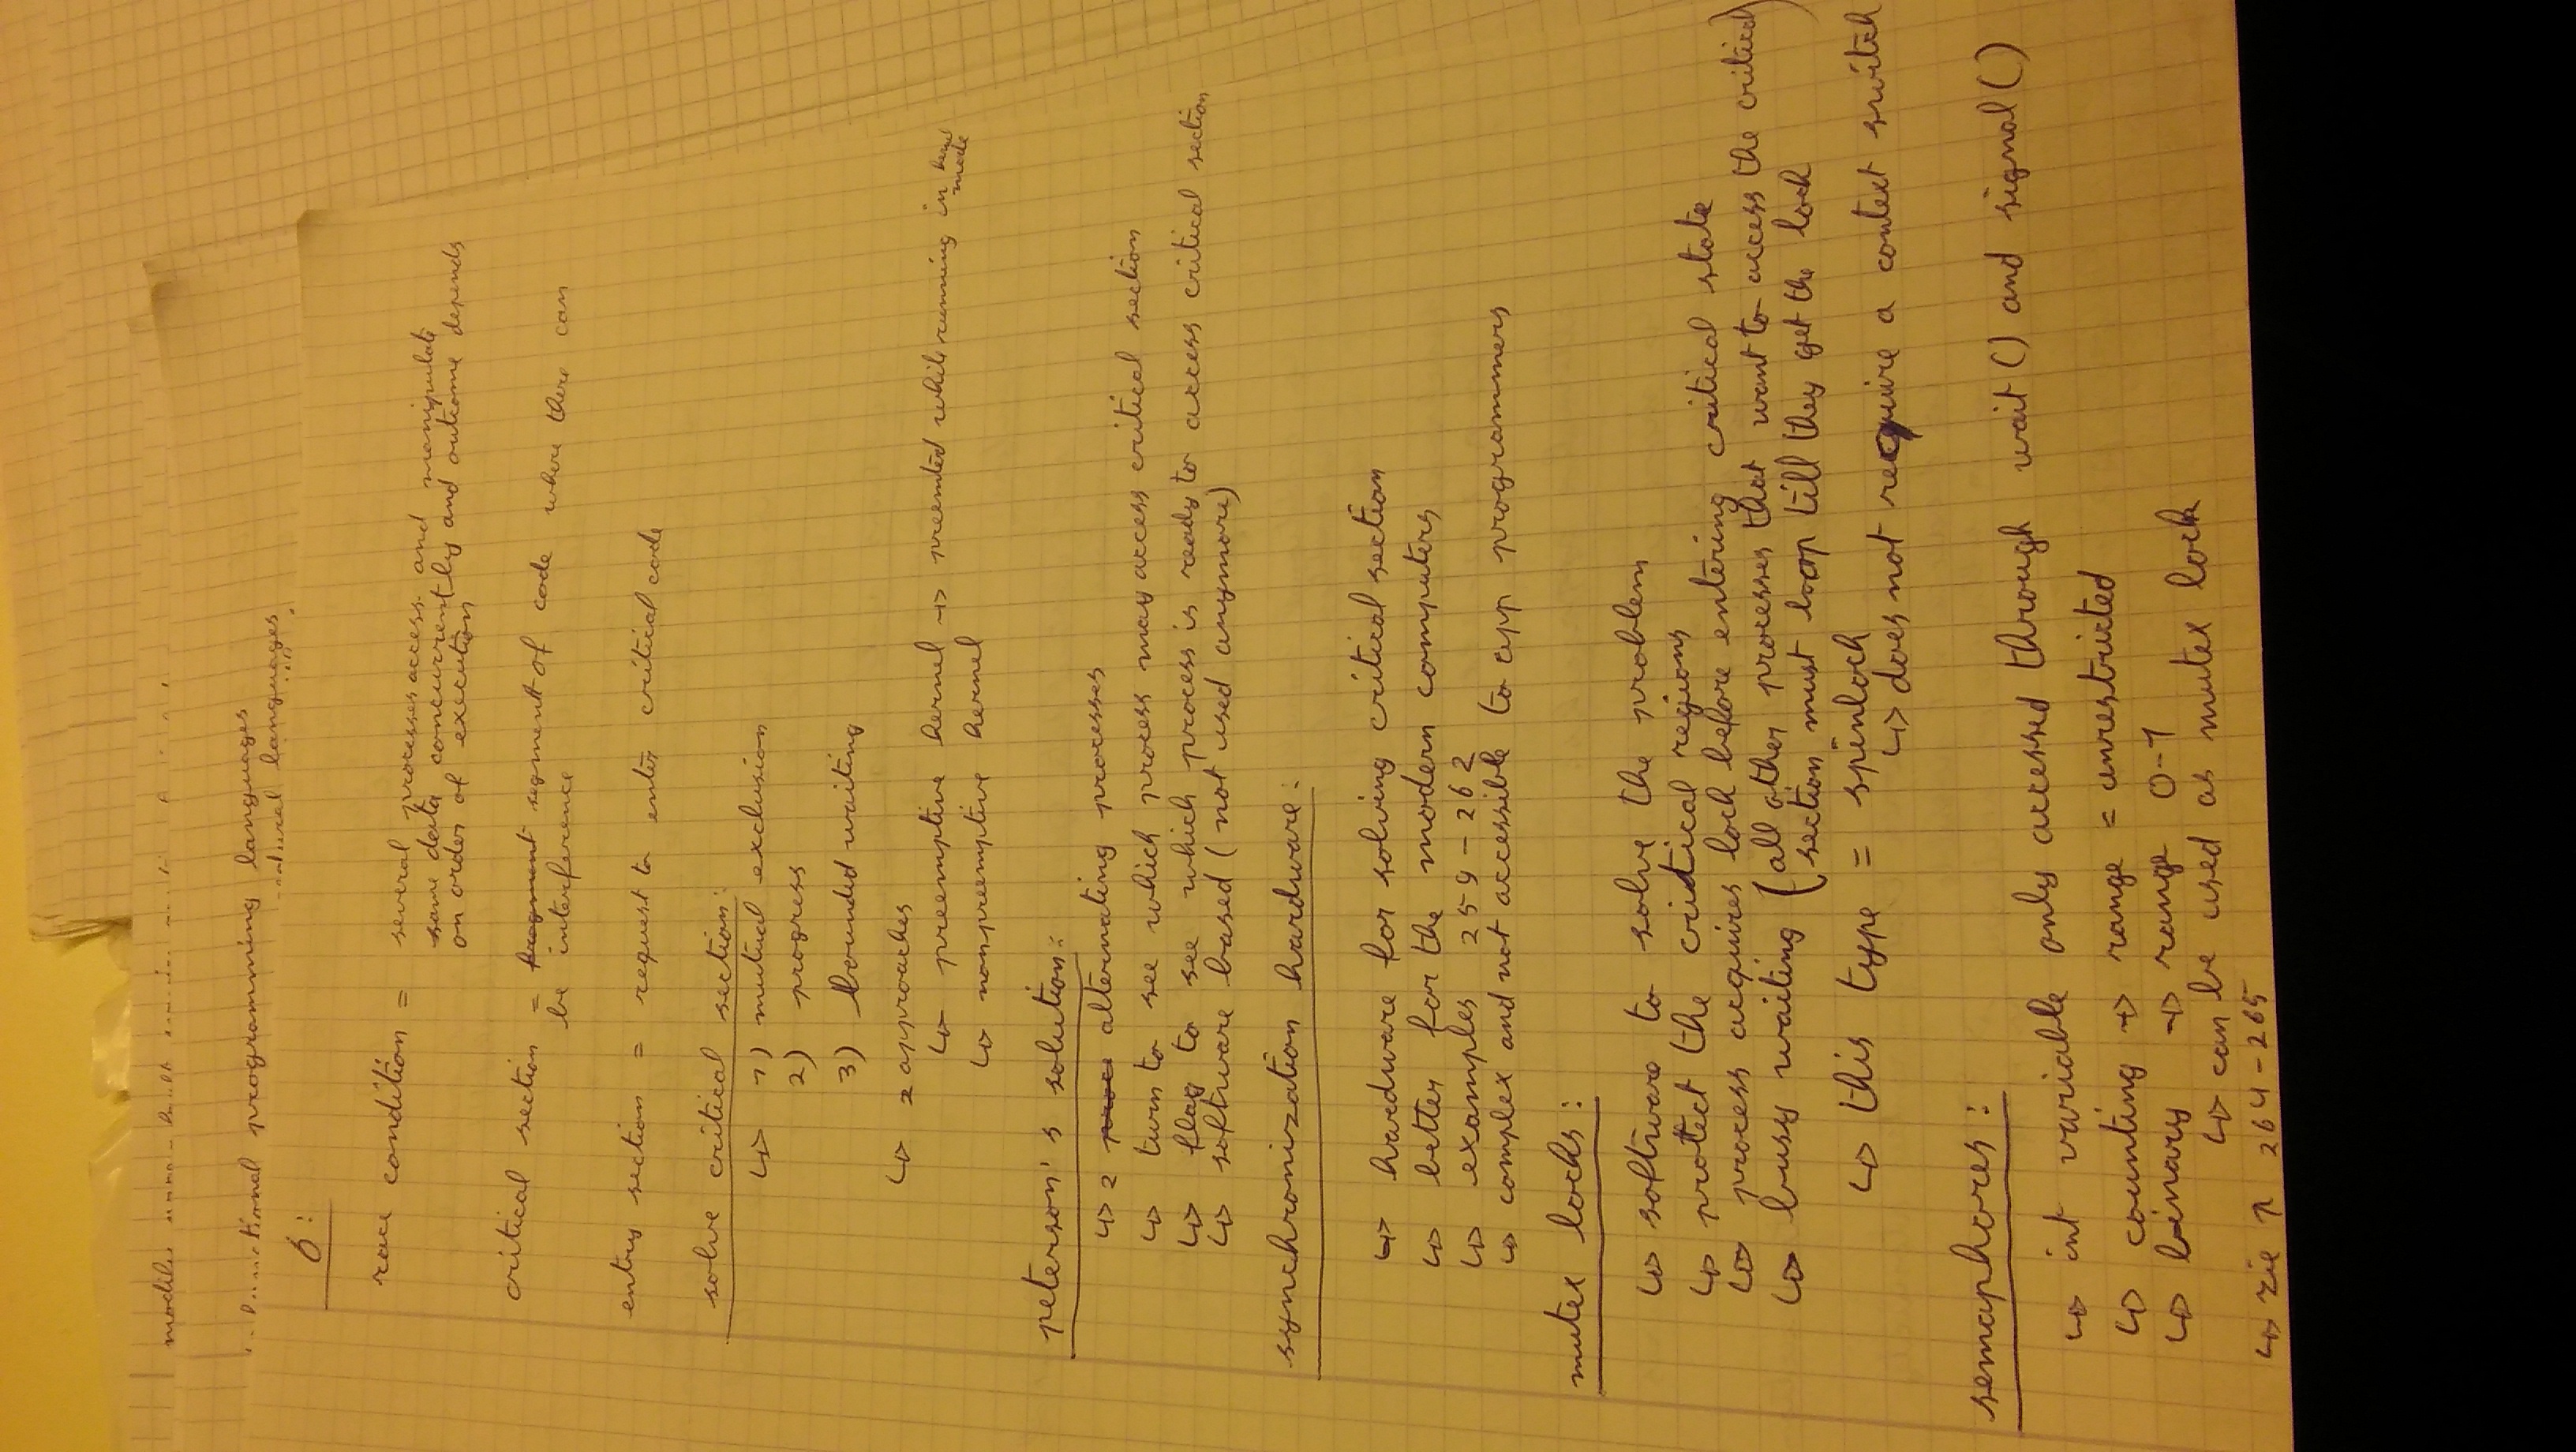 functional programming languages
languages
6:
race condition = several processes access and manipulate
same data concurrently and outcome depends
on order of execution
critical section = fragment segment of code where there can
be interference
entry section = request to enter critical code
solve critical section:
↳ 1) mutual exclusion
2) progress
3) bounded waiting
↳ 2 approaches
↳ preemptive kernel → preemted while running in kernel
mode
↳ nonpreemptive kernel
peterson's solution:
↳ 2 proce alternating processes
↳ turn to see which process may access critical section
↳ flag to see which process is ready to access critical section
↳ software based (not used anymore)
synchronization hardware:
↳ hardware for solving critical section
↳ better for the modern computers
↳ examples 259-262
↳ complex and not accessible to app programmers
mutex locks:
↳ software to solve the problem
↳ protect the critical regions
↳ process acquires lock before entering critical state
↳ busy waiting (all other processes that want to access the critical)
section must loop till they get the lock
↳ this type = spinlock
↳ does not require a context switch
semaphores:
↳ int variable only accessed through wait() and signal()
↳ counting → range = unrestricted
↳ binary → range 0-1
↳ can be used as mutex lock
↳ zie ↑ 264-265